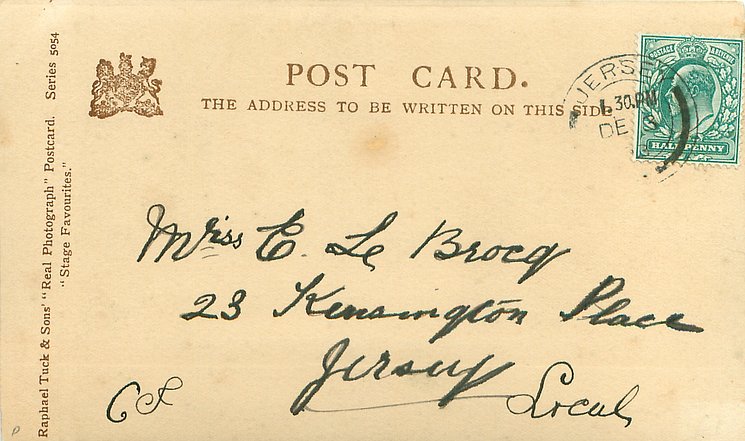 POST CARD.
THE ADDRESS TO BE WRITTEN ON THIS SIDE
Raphael Tuck & Sons' "Real Photograph" Postcard. Series 5054
"Stage Favourites."
JERSEY
1.30.PM
DE
POSTAGE
HALFPENNY
Miss E. Le Brocq
23 Kensington Place
Jersey
Local